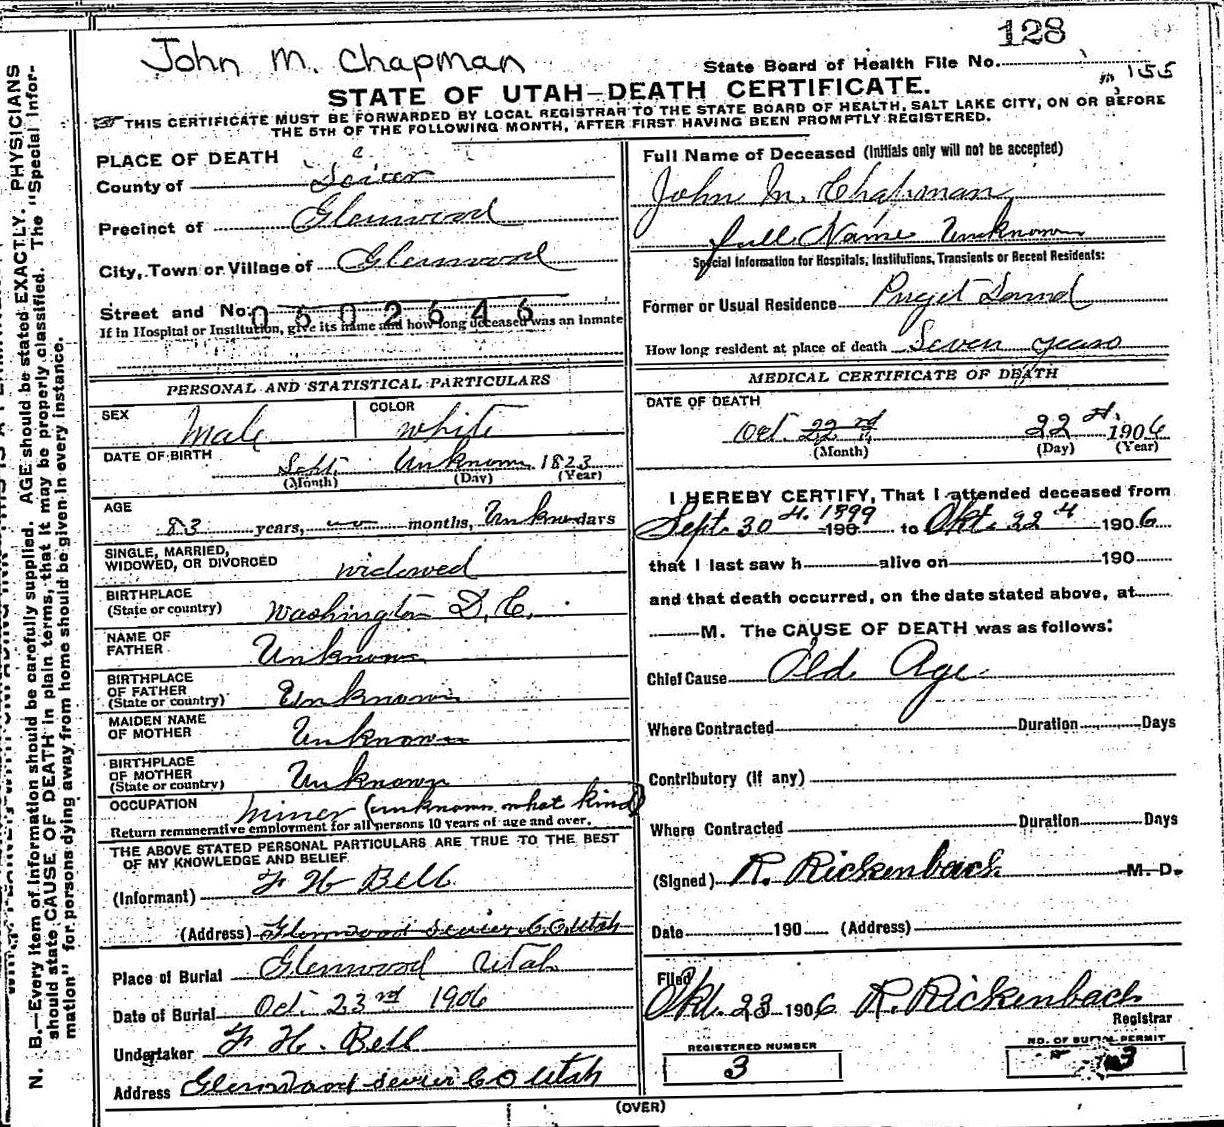 128
John M. Chapman
State Board of Health File No.
155
STATE OF UTAH—DEATH CERTIFICATE.
THIS CERTIFICATE MUST BE FORWARDED BY LOCAL REGISTRAR TO THE STATE BOARD OF HEALTH, SALT LAKE CITY, ON OR BEFORE
THE 5TH OF THE FOLLOWING MONTH, AFTER FIRST HAVING BEEN PROMPTLY REGISTERED.
PLACE OF DEATH
County of Sevier
Precinct of Glenwood
City, Town or Village of Glenwood
Street and No. 0502646
If in Hospital or Institution, give its name and how long deceased was an Inmate
PERSONAL AND STATISTICAL PARTICULARS
SEX Male COLOR White
DATE OF BIRTH Sept. Unknown 1823
(Month) (Day) (Year)
AGE 83 years, months, Unknown days
SINGLE, MARRIED,
WIDOWED, OR DIVORCED widowed
BIRTHPLACE
(State or country) Washington D.C.
NAME OF
FATHER Unknown
BIRTHPLACE
OF FATHER
(State or country) Unknown
MAIDEN NAME
OF MOTHER Unknown
BIRTHPLACE
OF MOTHER
(State or country) Unknown
OCCUPATION miner (unknown what kind)
Return remunerative employment for all persons 10 years of age and over.
THE ABOVE STATED PERSONAL PARTICULARS ARE TRUE TO THE BEST
OF MY KNOWLEDGE AND BELIEF.
(Informant) F H Bell
(Address) Glenwood Sevier CO Utah
Place of Burial Glenwood Utah
Date of Burial Oct. 23rd 1906
Undertaker F. H. Bell
Address Glenwood Sevier CO Utah
Full Name of Deceased (Initials only will not be accepted)
John M. Chapman
full Name Unknown
Special Information for Hospitals, Institutions, Transients or Recent Residents:
Former or Usual Residence Puget Sound
How long resident at place of death Seven years
MEDICAL CERTIFICATE OF DEATH
DATE OF DEATH
Oct. 22nd 22 1906
(Month) (Day) (Year)
I HEREBY CERTIFY, That I attended deceased from
Sept. 30 1899 190 to Okt. 22 1906
that I last saw h alive on 190
and that death occurred, on the date stated above, at
M. The CAUSE OF DEATH was as follows:
Chief Cause Old Age
Where Contracted Duration Days
Contributory (if any)
Where Contracted Duration Days
(Signed) R. Rickenbach M. D.
Date 190 (Address)
Filed
Okt. 23 1906 R. Rickenbach
Registrar
REGISTERED NUMBER
3
NO. OF BURIAL PERMIT
3
(OVER)
N. B.—Every item of information should be carefully supplied. AGE should be stated EXACTLY. PHYSICIANS
should state CAUSE OF DEATH in plain terms, that it may be properly classified. The "Special Infor-
mation" for persons dying away from home should be given in every instance.